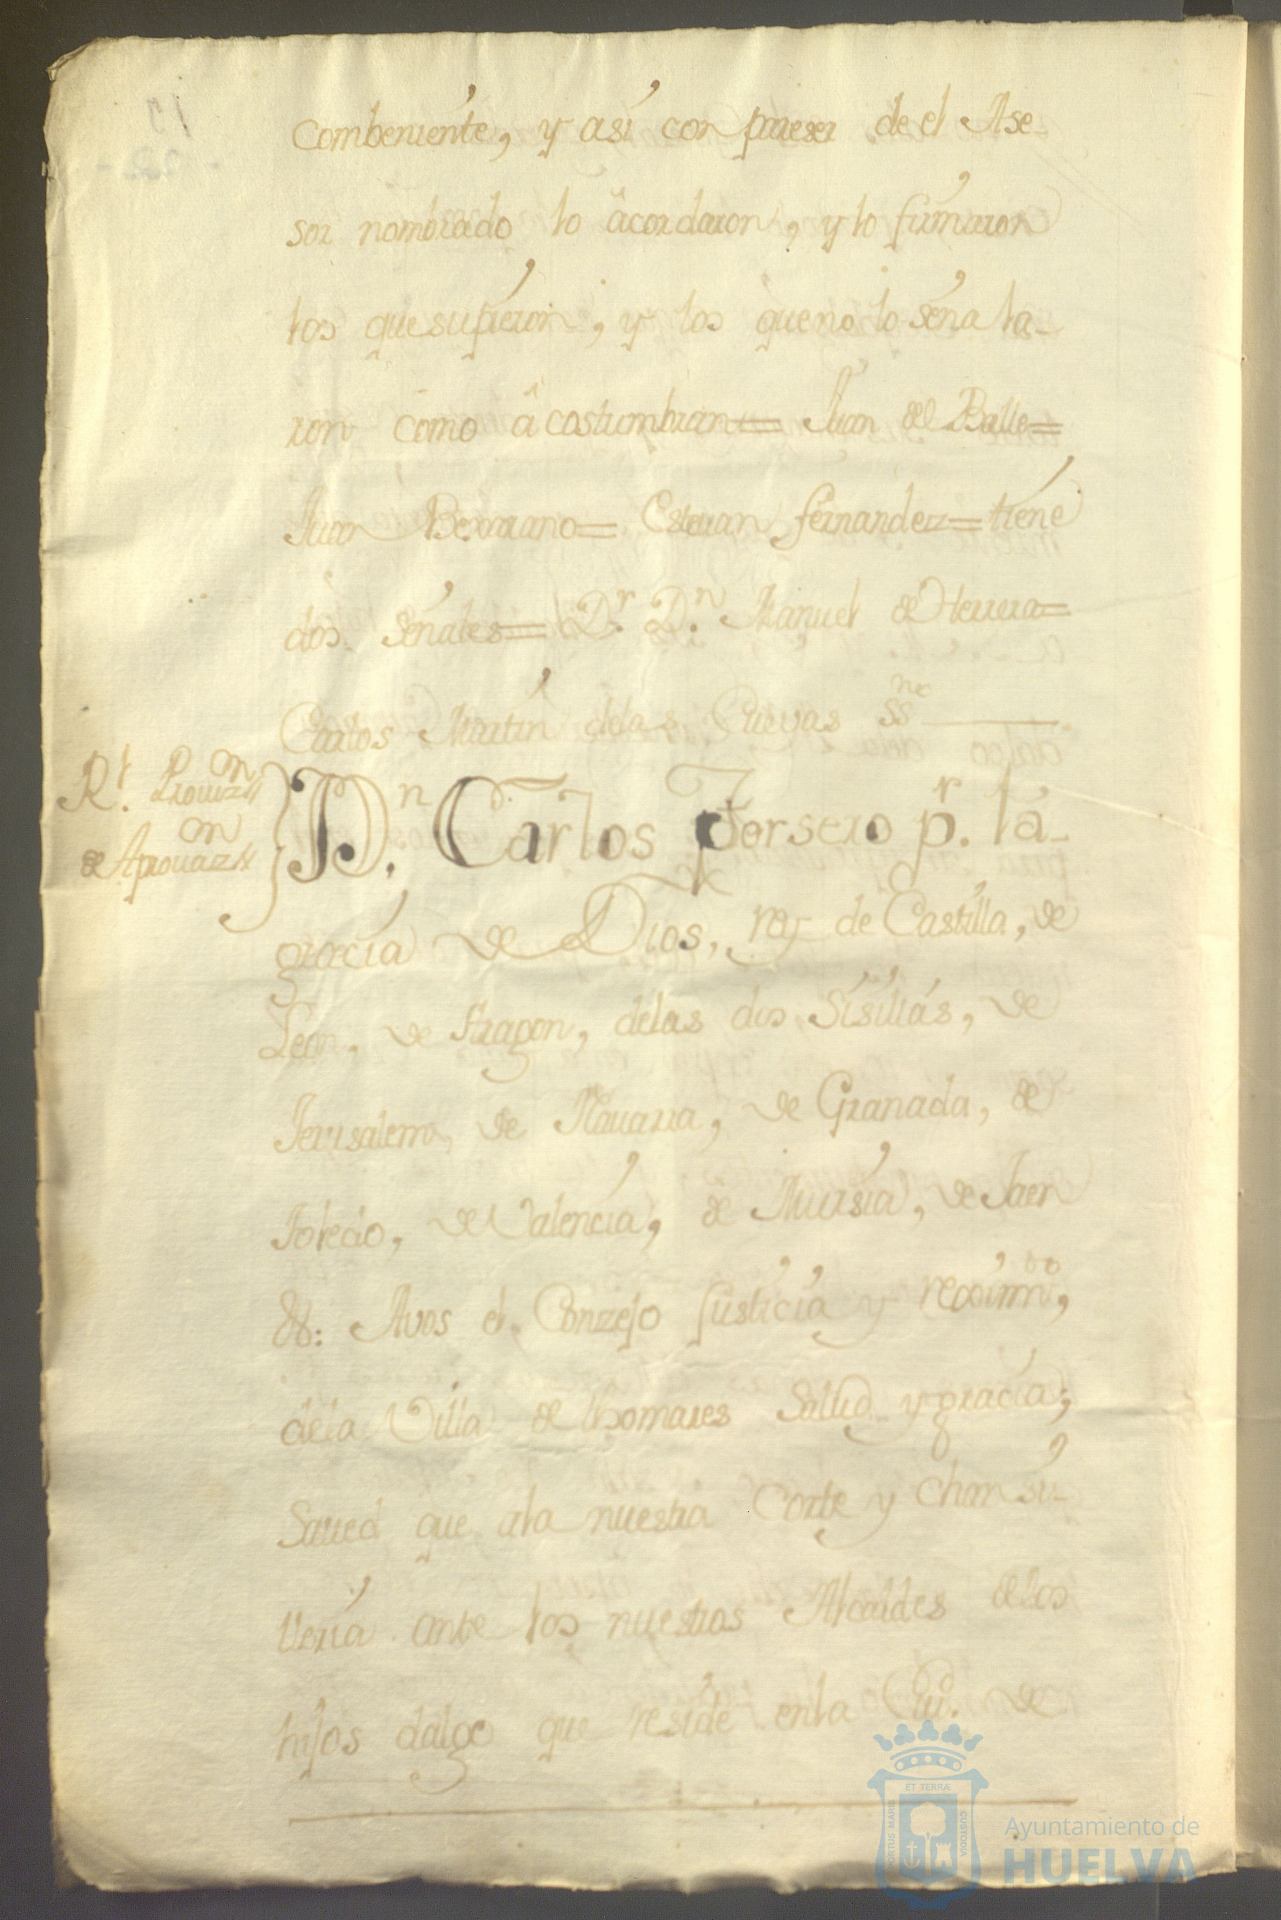 combeniente, y asi con pareser de el Ase-
sor nombrado lo âcordaron, y lo firmaron
los que supieron, y los que no lo señala-
ron como âcostumbran= Juan de Balle=
Juan Bexarano= Esteuan fernandez= tiene
dos señales= Dr. Dn. Manuel de Herrera=
Carlos Martin delas Cueyas ssno
Rl. Prouizn
de Aprouazn
Dn. Carlos Tersero pr. la-
gracia de Dios, rey de Castilla, de
Leon, de Aragon, delas dos Sisilias, de
Jerusalem, de Nauarra, de Granada, de
Toledo, de Valencia, de Mursia, de Jaen
&: Avos el Conzejo Justicia y reximto,
dela Villa de thomares Salud y gracia;
Saued que ala nuestra Corte y chansi-
lleria ante los nuestros Alcaldes delos
hijos dalgo que reside enla Ciu. de
ET TERRÆ
PORTUS MARIS
CUSTODIA
Ayuntamiento de
HUELVA